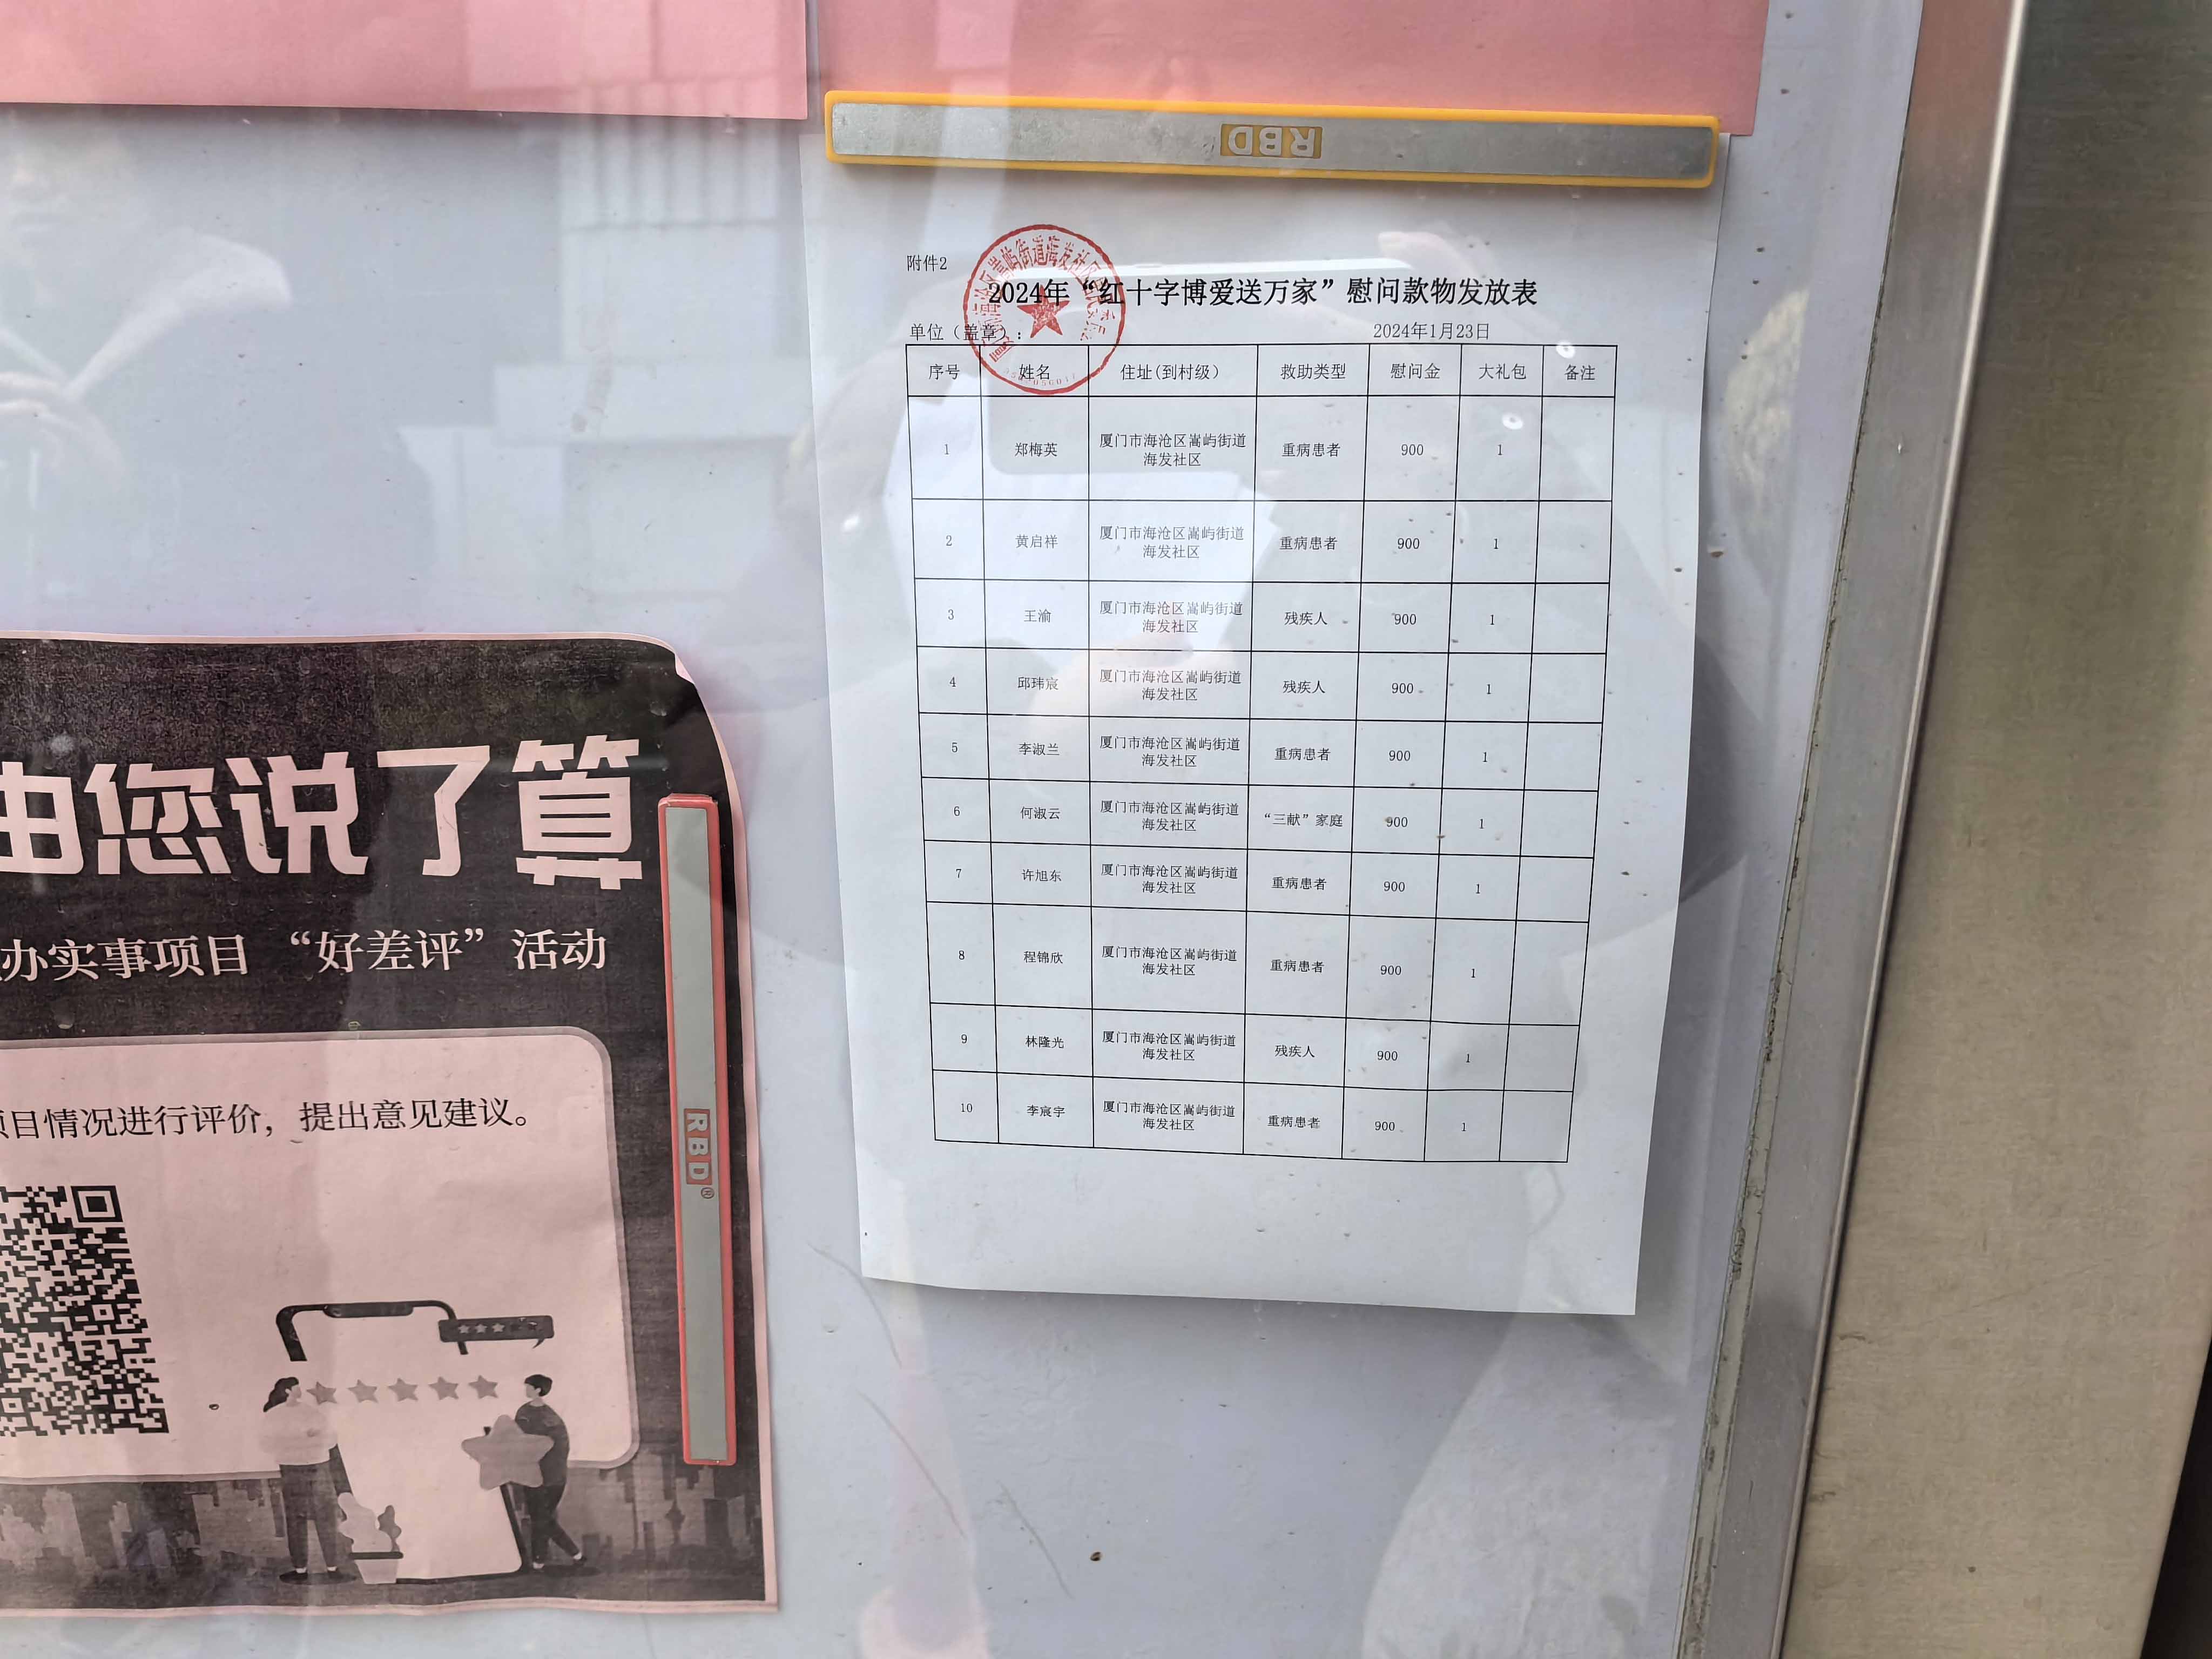 RBD
附件2
2024年“红十字博爱送万家”慰问款物发放表
单位（盖章）：
2024年1月23日
序号 姓名 住址(到村级) 救助类型 慰问金 大礼包 备注
1 郑梅英 厦门市海沧区嵩屿街道海发社区 重病患者 900 1
2 黄启祥 厦门市海沧区嵩屿街道海发社区 重病患者 900 1
3 王渝 厦门市海沧区嵩屿街道海发社区 残疾人 900 1
4 邱玮宸 厦门市海沧区嵩屿街道海发社区 残疾人 900 1
5 李淑兰 厦门市海沧区嵩屿街道海发社区 重病患者 900 1
6 何淑云 厦门市海沧区嵩屿街道海发社区 “三献”家庭 900 1
7 许旭东 厦门市海沧区嵩屿街道海发社区 重病患者 900 1
8 程锦欣 厦门市海沧区嵩屿街道海发社区 重病患者 900 1
9 林隆光 厦门市海沧区嵩屿街道海发社区 残疾人 900 1
10 李宸宇 厦门市海沧区嵩屿街道海发社区 重病患者 900 1
由您说了算
办实事项目 “好差评”活动
项目情况进行评价，提出意见建议。
RBD®